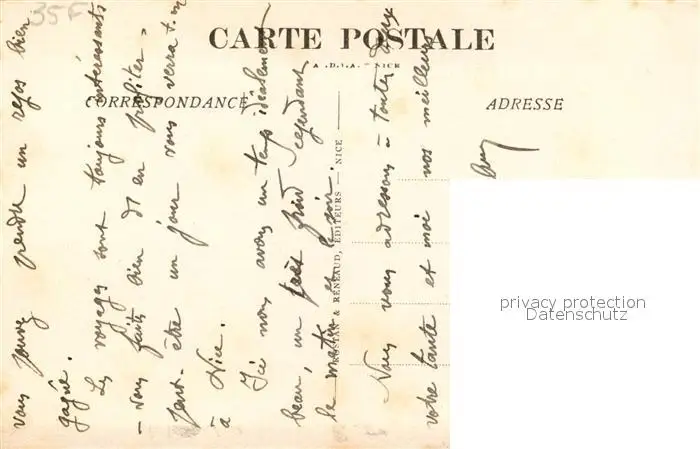 35F
CARTE POSTALE
CORRESPONDANCE
ADRESSE
ROSTAN & RÉNEAUD, ÉDITEURS — NICE
vous pouvez prendre un repos bien
gagné.
Les voyages sont toujours intéressants
vous faites bien d'en profiter,
peut-être un jour vous verra t-on
à Nice.
Ici nous avons un temps idéalement
beau, un peu froid cependant
le matin et le soir.
Nous vous adressons à toutes deux
votre tante et moi nos meilleurs
privacy protection
Datenschutz